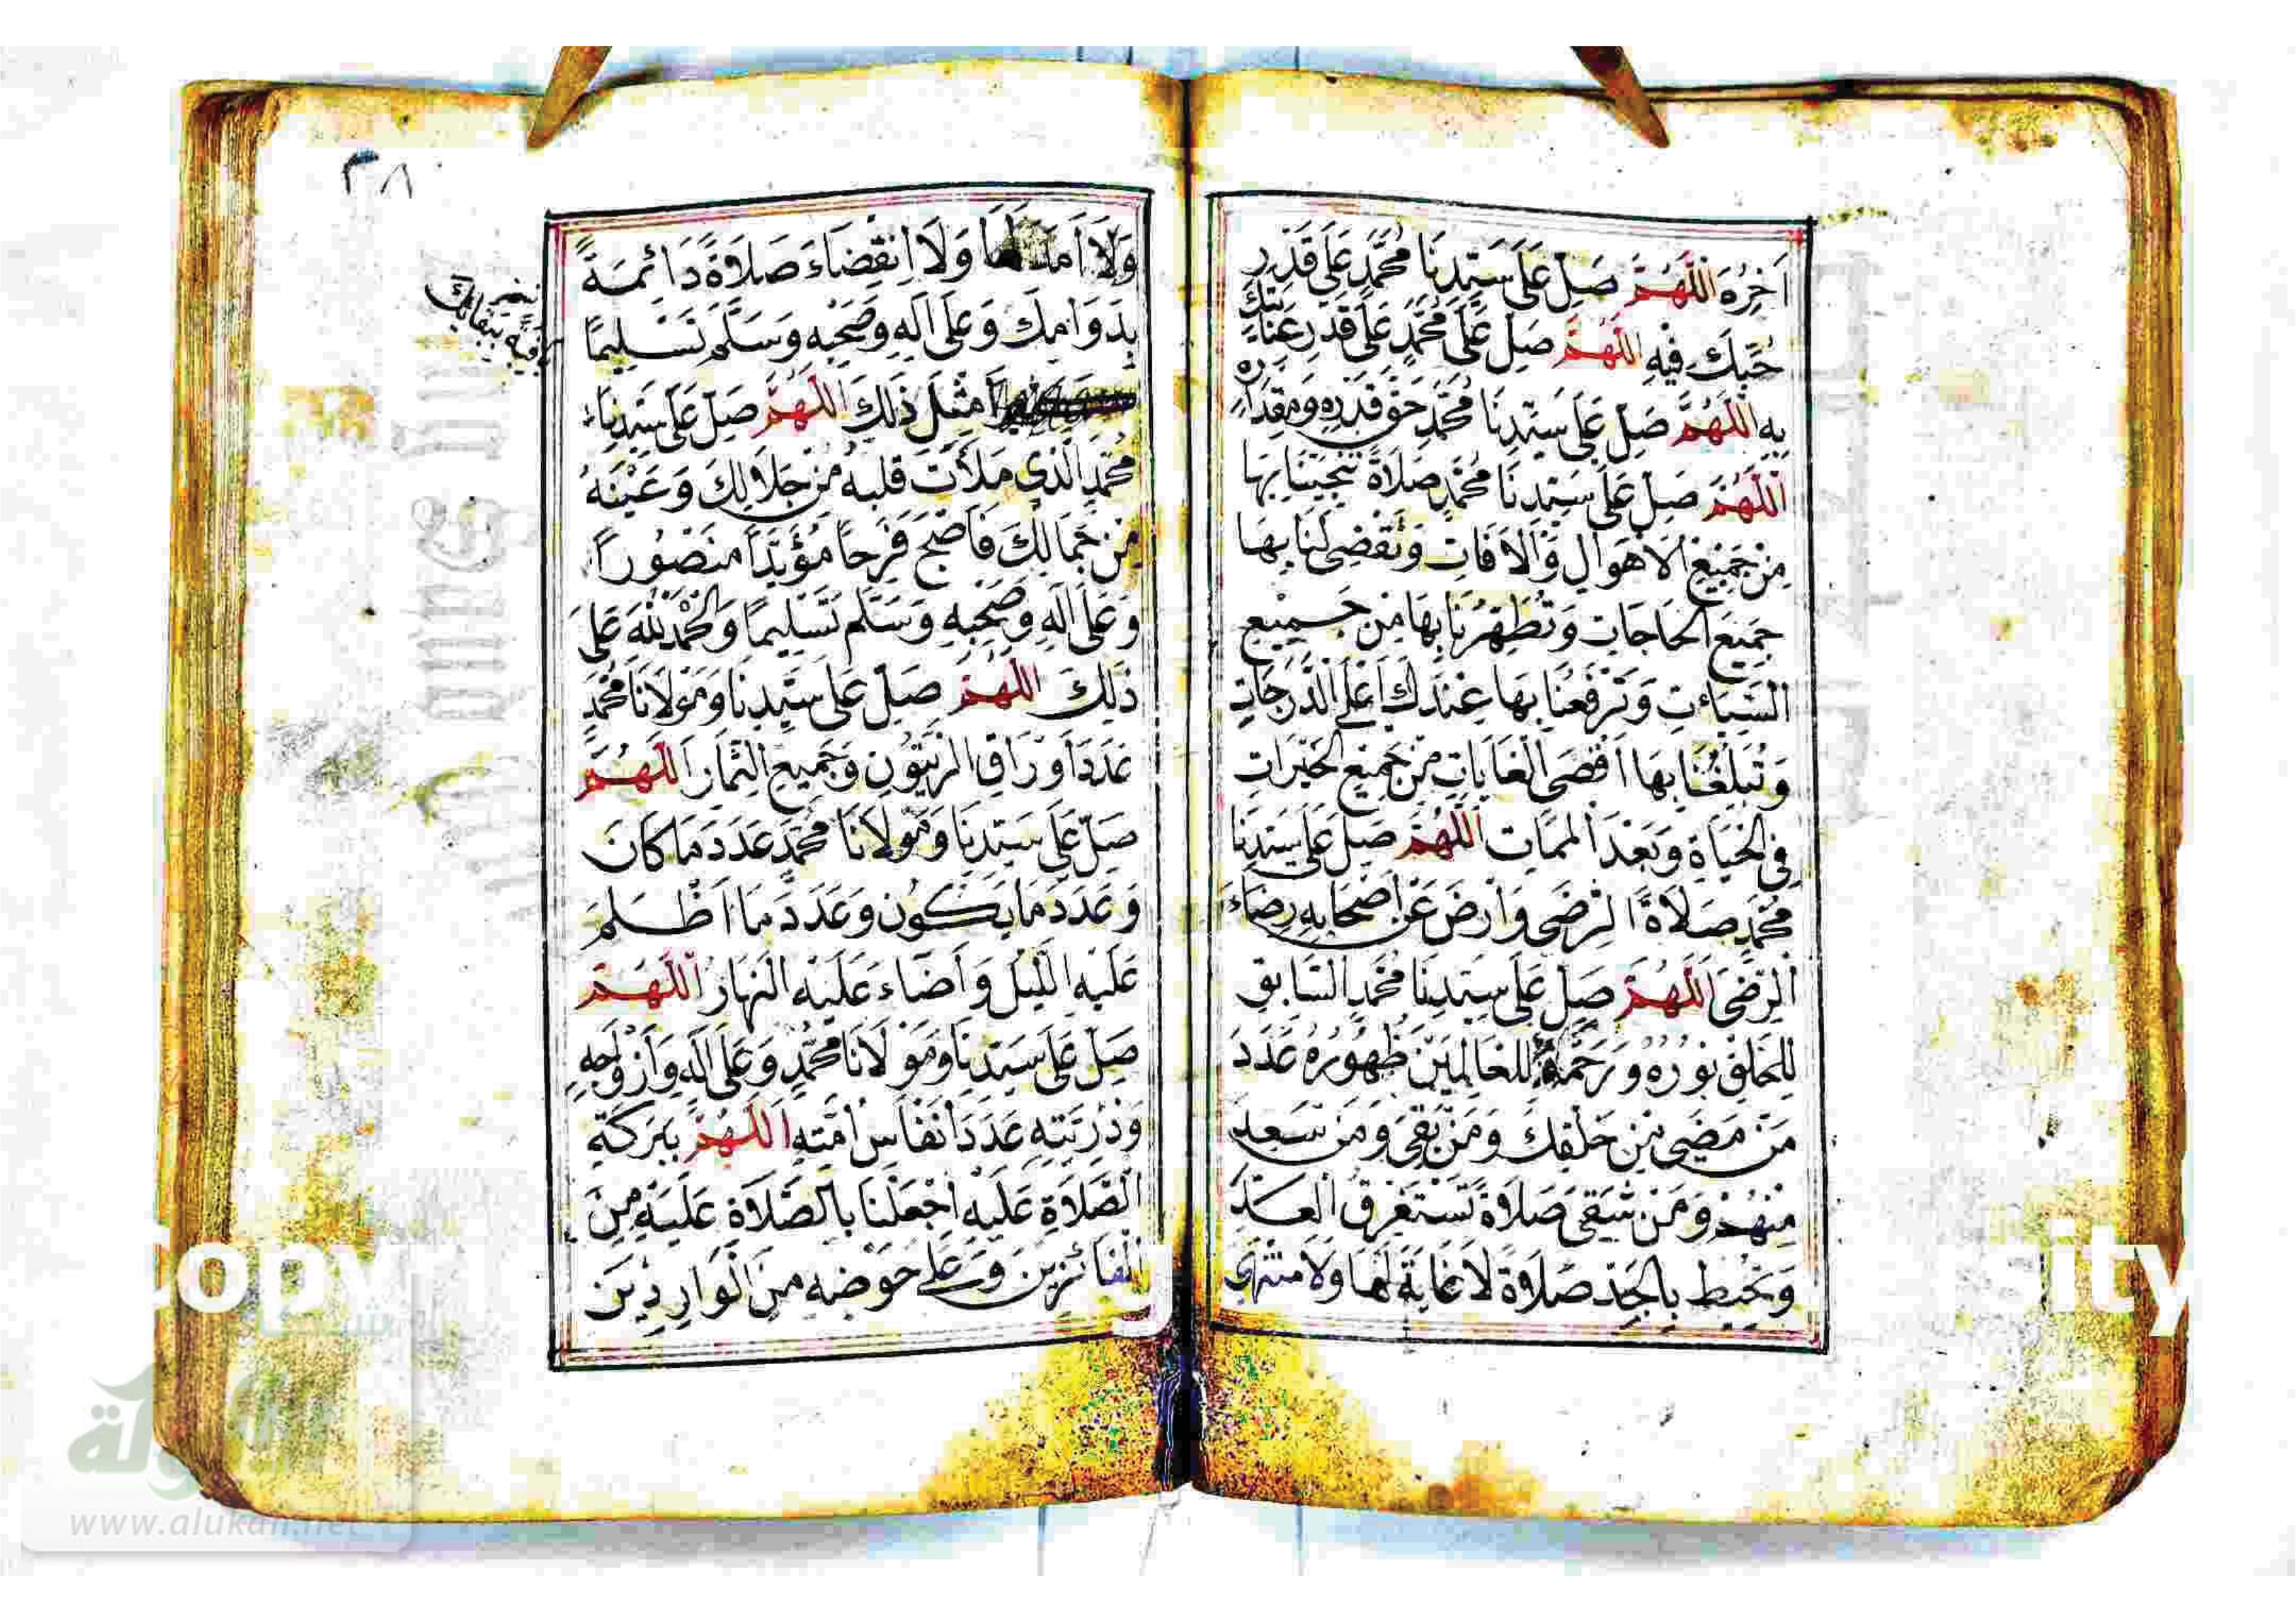 اَخِرُهُ اَللّٰهُمَّ صَلِّ عَلَى سَيِّدِنَا مُحَمَّدٍ عَلَى قَدْرِ
حُبِّكَ فِيهِ اَللّٰهُمَّ صَلِّ عَلَى مُحَمَّدٍ عَلَى قَدْرِ عِنَايَتِكَ
بِهِ اَللّٰهُمَّ صَلِّ عَلَى سَيِّدِنَا مُحَمَّدٍ حَقَّ قَدْرِهِ وَمِقْدَارِهِ
اَللّٰهُمَّ صَلِّ عَلَى سَيِّدِنَا مُحَمَّدٍ صَلَاةً تُنْجِيْنَا بِهَا
مِنْ جَمِيْعِ الْاَهْوَالِ وَالْاَفَاتِ وَتَقْضِى لَنَا بِهَا
جَمِيْعَ الْحَاجَاتِ وَتُطَهِّرُنَا بِهَا مِنْ جَمِيْعِ
السَّيِّاٰتِ وَتَرْفَعُنَا بِهَا عِنْدَكَ اَعْلَى الدَّرَجَاتِ
وَتُبَلِّغُنَا بِهَا اَقْصَى الْغَايَاتِ مِنْ جَمِيْعِ الْخَيْرَاتِ
فِى الْحَيَاةِ وَبَعْدَ الْمَمَاتِ اَللّٰهُمَّ صَلِّ عَلَى سَيِّدِنَا
مُحَمَّدٍ صَلَاةَ الرِّضَى وَارْضَ عَنْ اَصْحَابِهِ رِضَاءَ
الرِّضَى اَللّٰهُمَّ صَلِّ عَلَى سَيِّدِنَا مُحَمَّدٍ السَّابِقِ
لِلْخَلْقِ نُوْرُهُ وَرَحْمَةٌ لِلْعَالَمِيْنَ ظُهُوْرُهُ عَدَدَ
مَنْ مَضَى مِنْ خَلْقِكَ وَمَنْ بَقِىَ وَمَنْ سَعِدَ
مِنْهُمْ وَمَنْ شَقِىَ صَلَاةً تَسْتَغْرِقُ الْعَدَّ
وَتُحِيْطُ بِالْحَدِّ صَلَاةً لَا غَايَةَ لَهَا وَلَا مُنْتَهَى
٣٨
وَلَا اَمَدَ لَهَا وَلَا اِنْقِضَاءَ صَلَاةً دَائِمَةً
بِدَوَامِكَ وَعَلَى اٰلِهِ وَصَحْبِهِ وَسَلِّمْ تَسْلِيْمًا
مِثْلَ ذٰلِكَ اَللّٰهُمَّ صَلِّ عَلَى سَيِّدِنَا
مُحَمَّدٍ الَّذِى مَلَأْتَ قَلْبَهُ مِنْ جَلَالِكَ وَعَيْنَهُ
مِنْ جَمَالِكَ فَاَصْبَحَ فَرِحًا مُؤَيَّدًا مَنْصُوْرًا
وَعَلَى اٰلِهِ وَصَحْبِهِ وَسَلِّمْ تَسْلِيْمًا وَالْحَمْدُ لِلّٰهِ عَلَى
ذٰلِكَ اَللّٰهُمَّ صَلِّ عَلَى سَيِّدِنَا وَمَوْلَانَا مُحَمَّدٍ
عَدَدَ اَوْرَاقِ الزَّيْتُوْنِ وَجَمِيْعِ الثِّمَارِ اَللّٰهُمَّ
صَلِّ عَلَى سَيِّدِنَا وَمَوْلَانَا مُحَمَّدٍ عَدَدَ مَا كَانَ
وَعَدَدَ مَا يَكُوْنُ وَعَدَدَ مَا اَظْلَمَ
عَلَيْهِ اللَّيْلُ وَاَضَاءَ عَلَيْهِ النَّهَارُ اَللّٰهُمَّ
صَلِّ عَلَى سَيِّدِنَا وَمَوْلَانَا مُحَمَّدٍ وَعَلَى اٰلِهِ وَاَزْوَاجِهِ
وَذُرِّيَّتِهِ عَدَدَ اَنْفَاسِ اُمَّتِهِ اَللّٰهُمَّ بِبَرَكَةِ
الصَّلَاةِ عَلَيْهِ اجْعَلْنَا بِالصَّلَاةِ عَلَيْهِ مِنَ
الْفَائِزِيْنَ وَعَلَى حَوْضِهِ مِنَ الْوَارِدِيْنَ
الألوكة
www.alukah.net